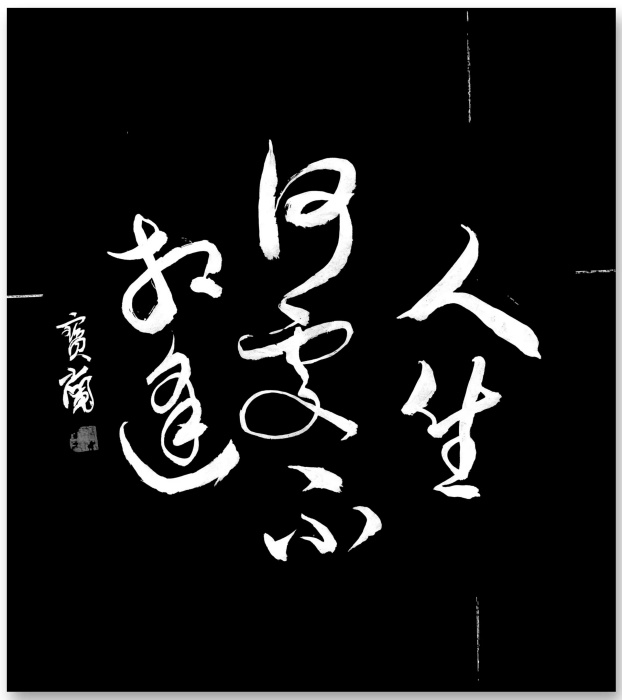 人生
何處不
相逢
寶蘭